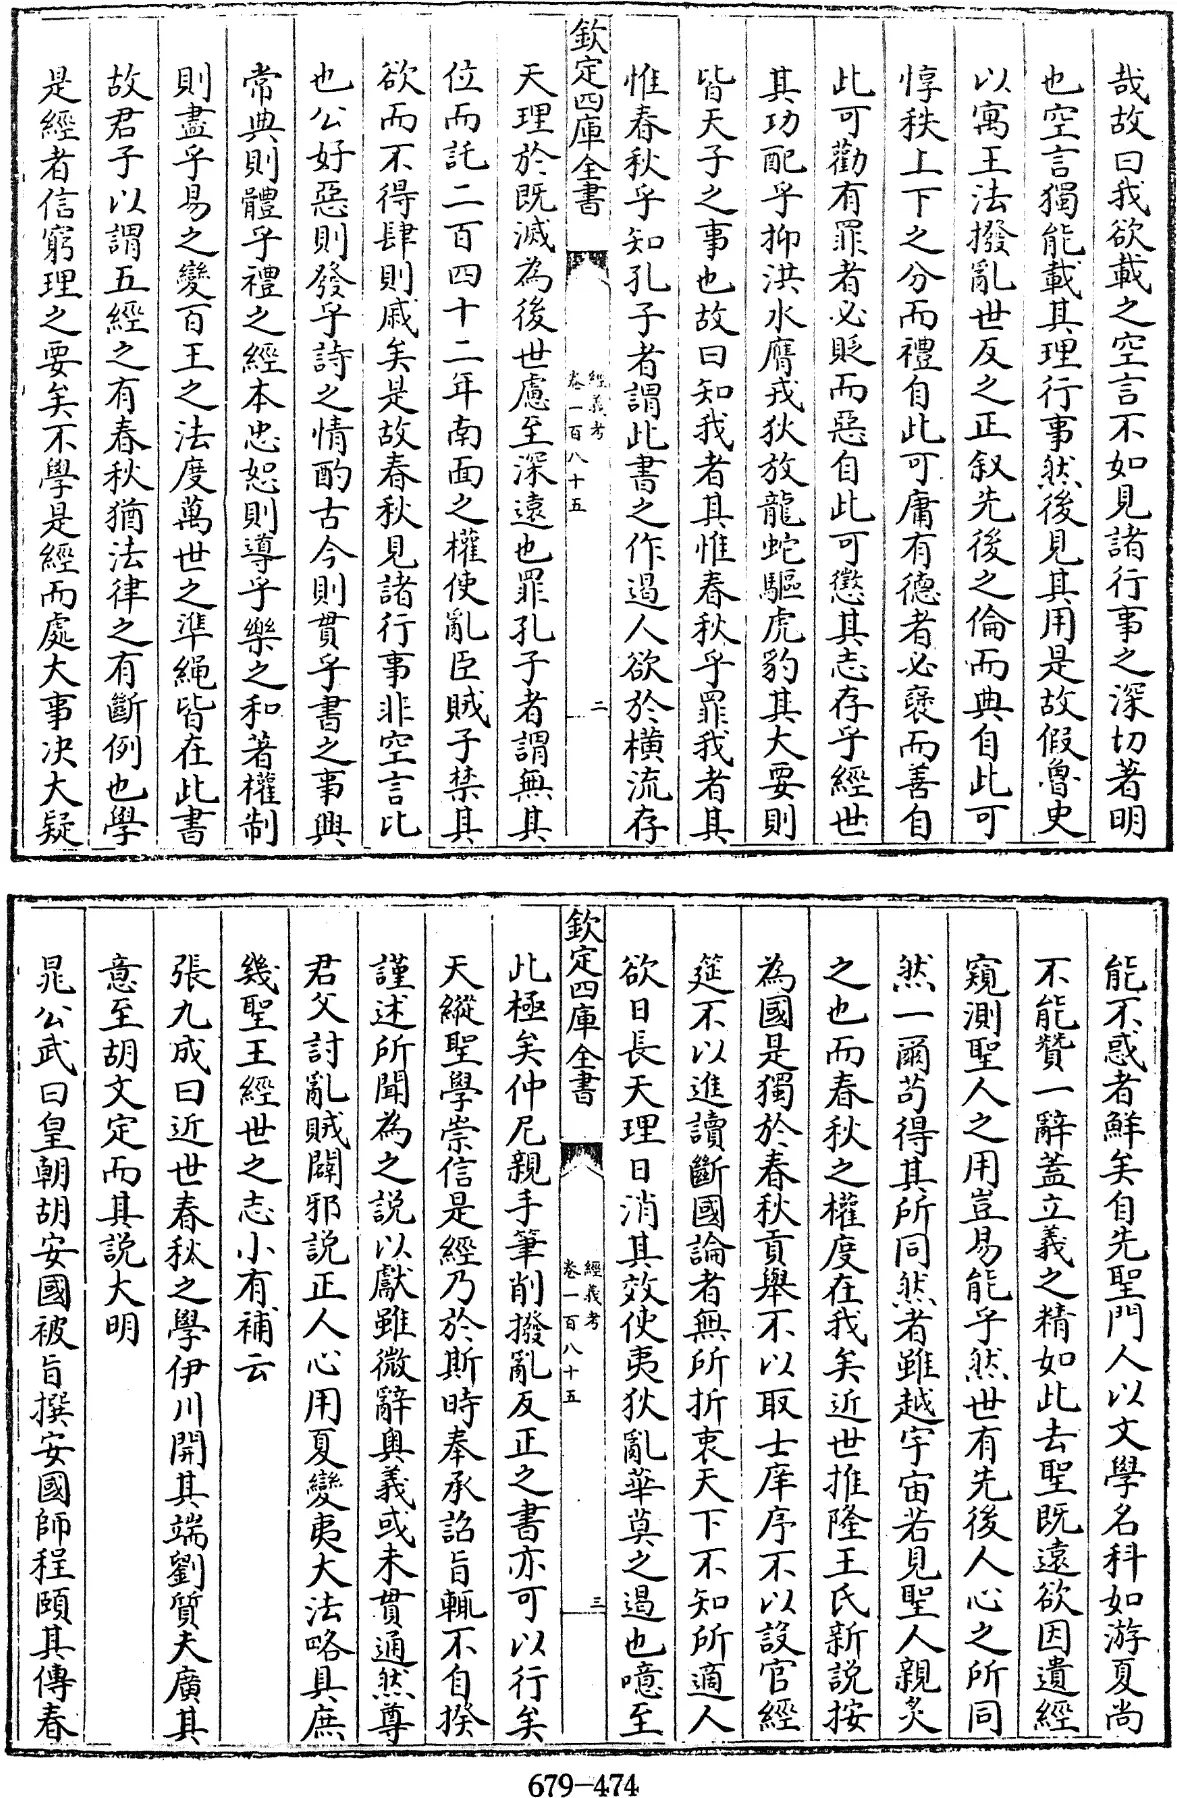 哉故曰我欲載之空言不如見諸行事之深切著明
也空言獨能載其理行事然後見其用是故假魯史
以寓王法撥亂世反之正叙先後之倫而典自此可
惇秩上下之分而禮自此可庸有德者必襃而善自
此可勸有罪者必貶而惡自此可懲其志存乎經世
其功配乎抑洪水膺戎狄放龍蛇驅虎豹其大要則
皆天子之事也故曰知我者其惟春秋乎罪我者其
惟春秋乎知孔子者謂此書之作遏人欲於橫流存
欽定四庫全書
經義考
卷一百八十五
二
天理於既滅為後世慮至深遠也罪孔子者謂無其
位而託二百四十二年南面之權使亂臣賊子禁其
欲而不得肆則戚矣是故春秋見諸行事非空言比
也公好惡則發乎詩之情酌古今則貫乎書之事興
常典則體乎禮之經本忠恕則導乎樂之和著權制
則盡乎易之變百王之法度萬世之準繩皆在此書
故君子以謂五經之有春秋猶法律之有斷例也學
是經者信窮理之要矣不學是經而處大事決大疑
能不惑者鮮矣自先聖門人以文學名科如游夏尚
不能贊一辭蓋立義之精如此去聖既遠欲因遺經
窺測聖人之用豈易能乎然世有先後人心之所同
然一爾茍得其所同然者雖越宇宙若見聖人親炙
之也而春秋之權度在我矣近世推隆王氏新説按
為國是獨於春秋貢舉不以取士庠序不以設官經
筵不以進讀斷國論者無所折衷天下不知所適人
欲日長天理日消其效使夷狄亂華莫之遏也噫至
欽定四庫全書
經義考
卷一百八十五
三
此極矣仲尼親手筆削撥亂反正之書亦可以行矣
天縱聖學崇信是經乃於斯時奉承詔旨輒不自揆
謹述所聞為之説以獻雖微辭奥義或未貫通然尊
君父討亂賊闢邪説正人心用夏變夷大法略具庶
幾聖王經世之志小有補云
張九成曰近世春秋之學伊川開其端劉質夫廣其
意至胡文定而其説大明
晁公武曰皇朝胡安國被旨撰安國師程頤其傳春
679-474